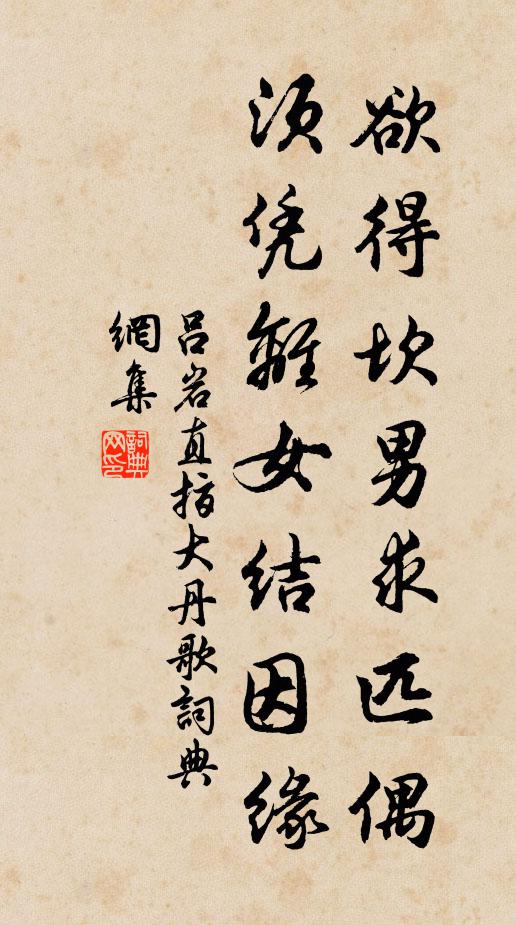 欲得坎男求匹偶
须凭離女结因缘
吕岩直指大丹歌詞典
網集
詞典网印